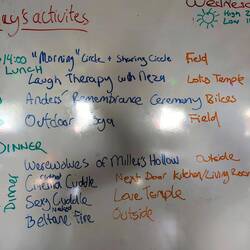 Wednesd
High 2
Low 1
ay's activites
14:00 "Morning" Circle + Sharing Circle Field
LUNCH
Laugh Therapy with Neza Lotis Temple
Anders' Remembrance Ceremony Bikers
Outdoor Field
DINNER
Werewolves of Millers Hollow Outside
Dinner
Cinema Cuddle Next Door Kitchen/Living Room
Sexy Cuddle Love Temple
Naked
Beltane Fire Outside